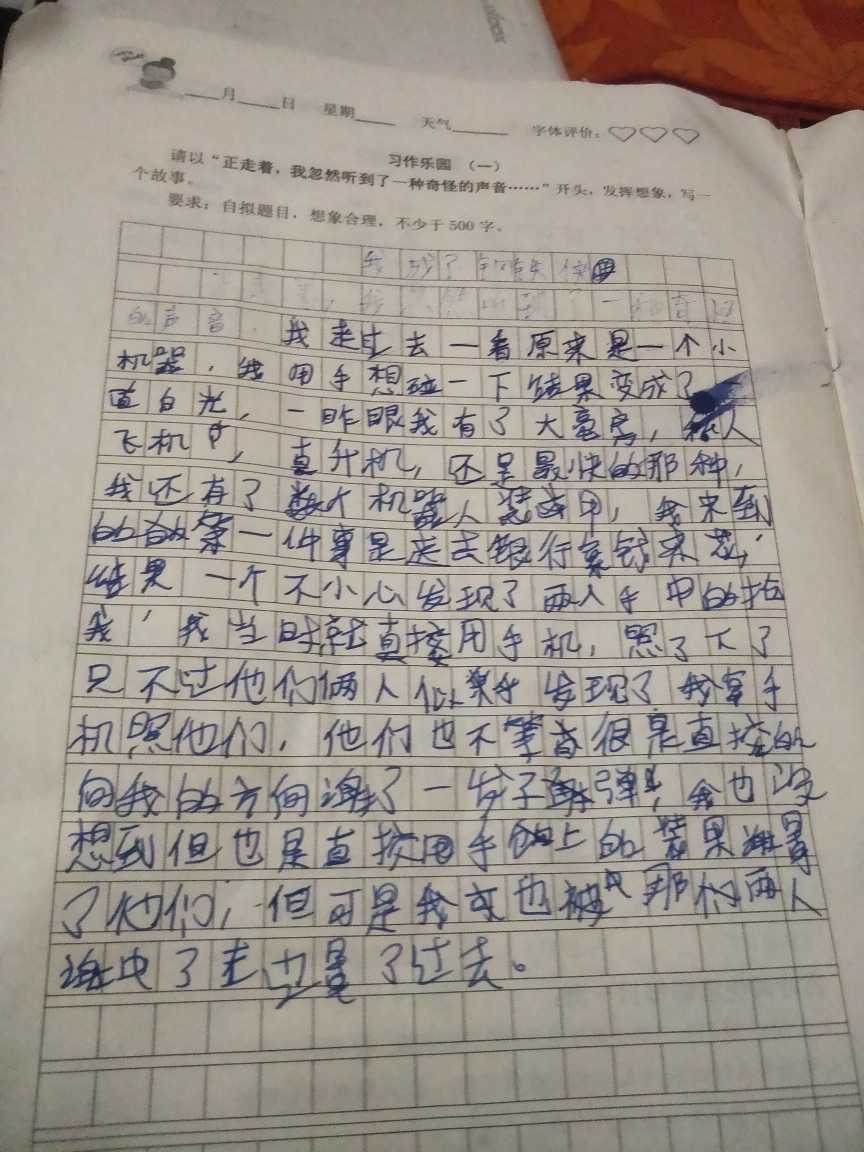 ____月____日 星期____ 天气______ 字体评价：
习作乐园（一）
请以“正走着，我忽然听到了一种奇怪的声音……”开头，发挥想象，写一
个故事。
要求：自拟题目，想象合理，不少于500字。
我 了 钢铁侠
走着，我 然听到了一种奇
的声音．我走过去一看原来是一个小
机器，我用手想碰一下结果变成了一
道白光，一昨眼我有了大豪宅，私人
飞机，直升机，还是最快的那种，
我还有了数个机器人装甲，我来到
的第一件事是走去银行拿钱来花，
结果一个不小心发现了两人手中的
我，我当时就直接用手机，照了下了
只不过他们俩人似乎发现了我拿手
机照他们，他们也不 很是直接的
向我的方向 了一发子弹，我也没
想到但也是直接用手 上的装 晕
了他们，但可是我 也被那们两人
中了 也晕了过去。